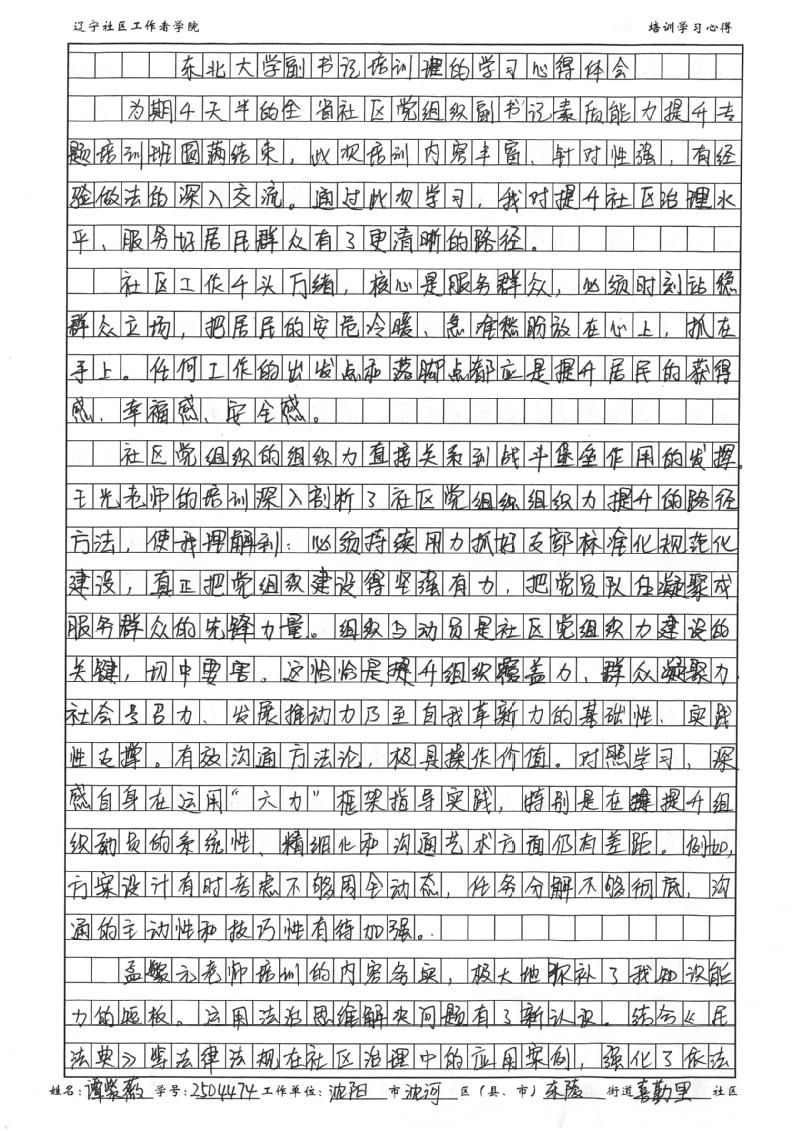 辽宁社区工作者学院 培训学习心得
东北大学副书记培训班的学习心得体会
为期4天半的全省社区党组织副书记素质能力提升专
题培训班圆满结束，此次培训内容丰富、针对性强，有经
验做法的深入交流。通过此次学习，我对提升社区治理水
平、服务好居民群众有了更清晰的路径。
社区工作千头万绪，核心是服务群众，必须时刻站稳
群众立场，把居民的安危冷暖、急难愁盼放在心上，抓在
手上。任何工作的出发点和落脚点都应是提升居民的获得
感、幸福感、安全感。
社区党组织的组织力直接关系到战斗堡垒作用的发挥。
王光老师的培训深入剖析了社区党组织组织力提升的路径
方法，使我理解到：必须持续用力抓好支部标准化规范化
建设，真正把党组织建设得坚强有力，把党员队伍凝聚成
服务群众的先锋力量。组织与动员是社区党组织力建设的
关键，切中要害，这恰恰是提升组织覆盖力、群众凝聚力、
社会号召力、发展推动力乃至自我革新力的基础性、实践
性支撑。有效沟通方法论，极具操作价值。对照学习，深
感自身在运用“六力”框架指导实践，特别是在提升组
织动员的系统性、精细化和沟通艺术方面仍有差距。例如，
方案设计有时考虑不够周全动态，任务分解不够彻底，沟
通的主动性和技巧性有待加强。
孟繁元老师培训的内容务实，极大地弥补了我知识能
力的短板。运用法治思维解决问题有了新认识。结合《民
法典》等法律法规在社区治理中的应用案例，强化了依法
姓名：谭紫薇 学号：2504474 工作单位：沈阳 市 沈河 区（县、市） 东陵 街道 喜勤里 社区